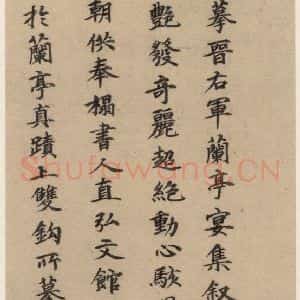 摹晉右軍蘭亭宴集敘
艷發奇麗超絕動心駭
朝供奉搨書人直弘文館
於蘭亭真蹟上雙鈎所摹
Shufawang.CN